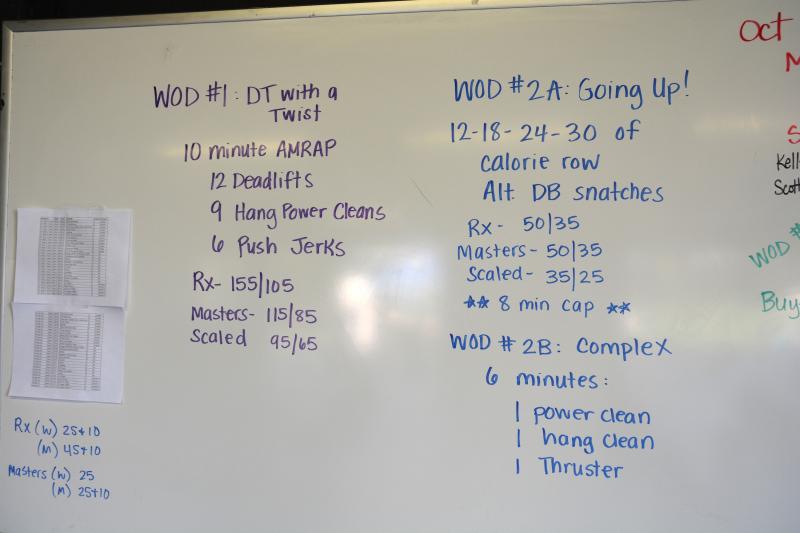 WOD #1: DT with a
Twist
10 minute AMRAP
12 Deadlifts
9 Hang Power Cleans
6 Push Jerks
Rx- 155/105
Masters- 115/85
Scaled 95/65
Rx (W) 25+10
(M) 45+10
Masters (W) 25
(M) 25+10
WOD #2A: Going Up!
12-18-24-30 of
calorie row
Alt. DB snatches
Rx- 50/35
Masters- 50/35
Scaled- 35/25
** 8 min cap **
WOD # 2B: Complex
6 minutes:
1 power clean
1 hang clean
1 Thruster
Oct
M
S
Kell
Scott
WOD #
Buy